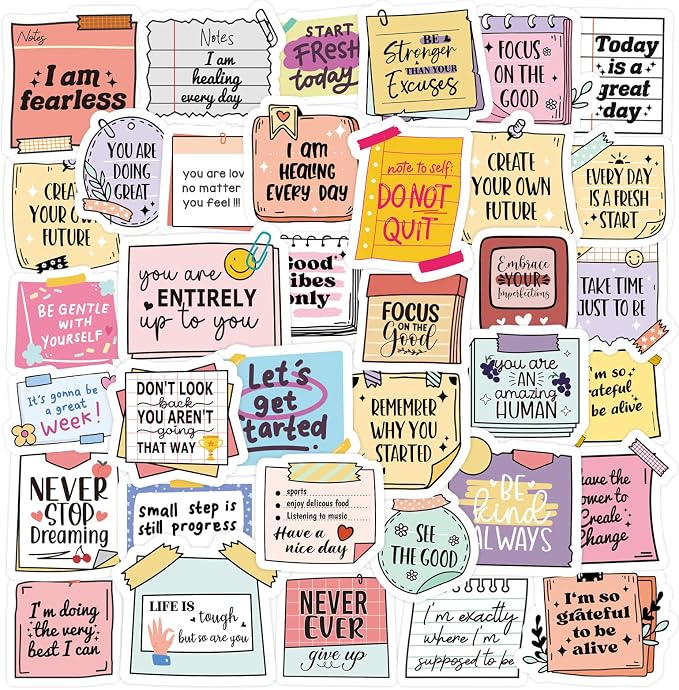 Notes
I am
fearless
Notes
I am
healing
every day
START
FRESH
today
BE
Stronger
THAN YOUR
Excuses
FOCUS
ON THE
GOOD
Today
is a
great
day
YOU ARE
DOING
GREAT
you are lov
no matter
you feel !!!
I AM
HEALING
EVERY DAY
note to self:
DO NOT
QUIT
CREATE
YOUR OWN
FUTURE
EVERY DAY
IS A FRESH
START
CREA
YOUR OW
FUTURE
you are
ENTIRELY
up to you
Good
vibes
only
FOCUS
ON THE
Good
Embrace
YOUR
Imperfections
TAKE TIME
JUST TO BE
BE GENTLE
WITH
YOURSELF
It's gonna be
a great
week!
DON'T LOOK
back
YOU AREN'T
going
THAT WAY
Let's
get
started.
REMEMBER
WHY YOU
STARTED
you are
AN
amazing
HUMAN
I'm so
grateful
be alive
NEVER
STOP
Dreaming
small step is
still progress
sports
enjoy delicous food
Listening to music
Have a
nice day
SEE
THE GOOD
BE
kind
ALWAYS
have the
power to
Create
Change
I'm doing
the very
best I can
LIFE IS
tough
but so are you
NEVER
EVER
give up
i'm exactly
where i'm
supposed to be
I'm so
grateful
to be
alive